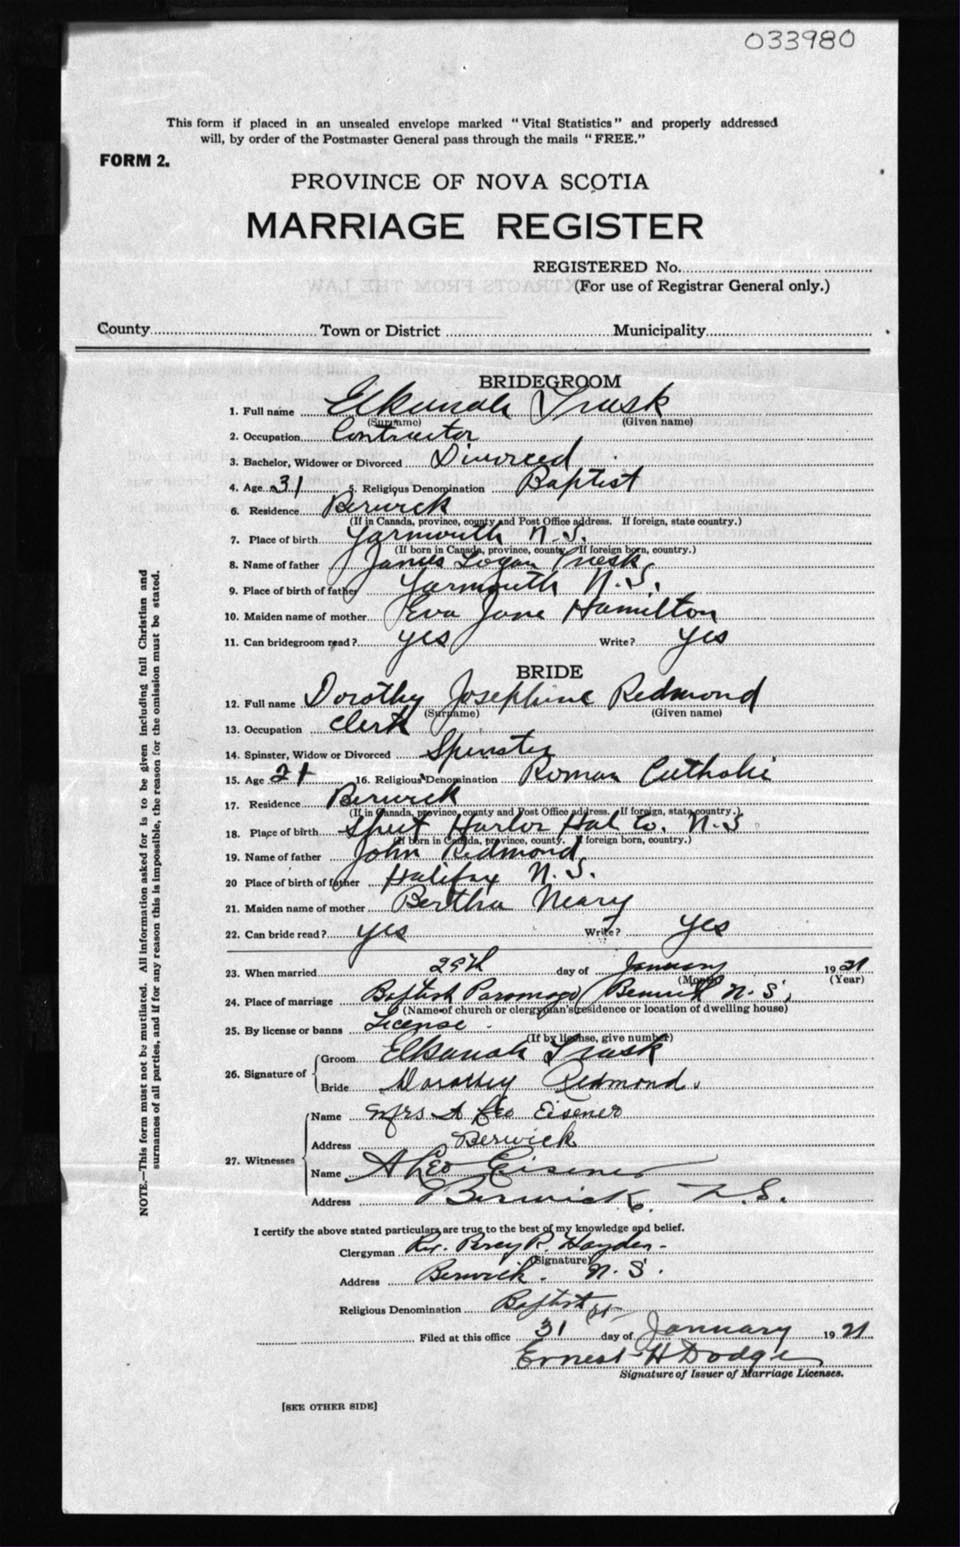 033980
This form if placed in an unsealed envelope marked "Vital Statistics" and properly addressed
will, by order of the Postmaster General pass through the mails "FREE."
FORM 2.
PROVINCE OF NOVA SCOTIA
MARRIAGE REGISTER
REGISTERED No.
(For use of Registrar General only.)
County Town or District Municipality
BRIDEGROOM
1. Full name Elkanah Trask
(Surname) (Given name)
2. Occupation Contractor
3. Bachelor, Widower or Divorced Divorced
4. Age 31 5. Religious Denomination Baptist
6. Residence Berwick
(If in Canada, province, county and Post Office address. If foreign, state country.)
7. Place of birth Yarmouth N.S.
(If born in Canada, province, county. If foreign born, country.)
8. Name of father James Logan Trask
9. Place of birth of father Yarmouth N.S.
10. Maiden name of mother Eva Jane Hamilton
11. Can bridegroom read? yes Write? yes
BRIDE
12. Full name Dorothy Josephine Redmond
(Surname) (Given name)
13. Occupation Clerk
14. Spinster, Widow or Divorced Spinster
15. Age 21 16. Religious Denomination Roman Catholic
17. Residence Berwick
(If in Canada, province, county and Post Office address. If foreign, state country.)
18. Place of birth Harbor Hal Co. N.S
(If born in Canada, province, county. If foreign born, country.)
19. Name of father John Redmond
20 Place of birth of father Halifax N.S.
21. Maiden name of mother Bertha Neary
22. Can bride read? yes Write? yes
23. When married 29th day of January 1921
(Month) (Year)
24. Place of marriage Baptist Parsonage Berwick N.S.
(Name of church or clergyman's residence or location of dwelling house)
25. By license or banns License.
(If by license, give number)
26. Signature of Groom Elkanah Trask
Bride Dorothy Redmond.
27. Witnesses Name Mrs A Leo Eisener
Address Berwick
Name A Leo Eisener
Address Berwick, N.S.
I certify the above stated particulars are true to the best of my knowledge and belief.
Clergyman Rev. Percy R. Hayden.
(Signature)
Address Berwick. N.S.
Religious Denomination Baptist
Filed at this office 31 day of January 1921
Ernest H Dodge
Signature of Issuer of Marriage Licenses.
[SEE OTHER SIDE]
NOTE.—This form must not be mutilated. All information asked for is to be given including full Christian and
surnames of all parties, and if for any reason this is impossible, the reason for the omission must be stated.